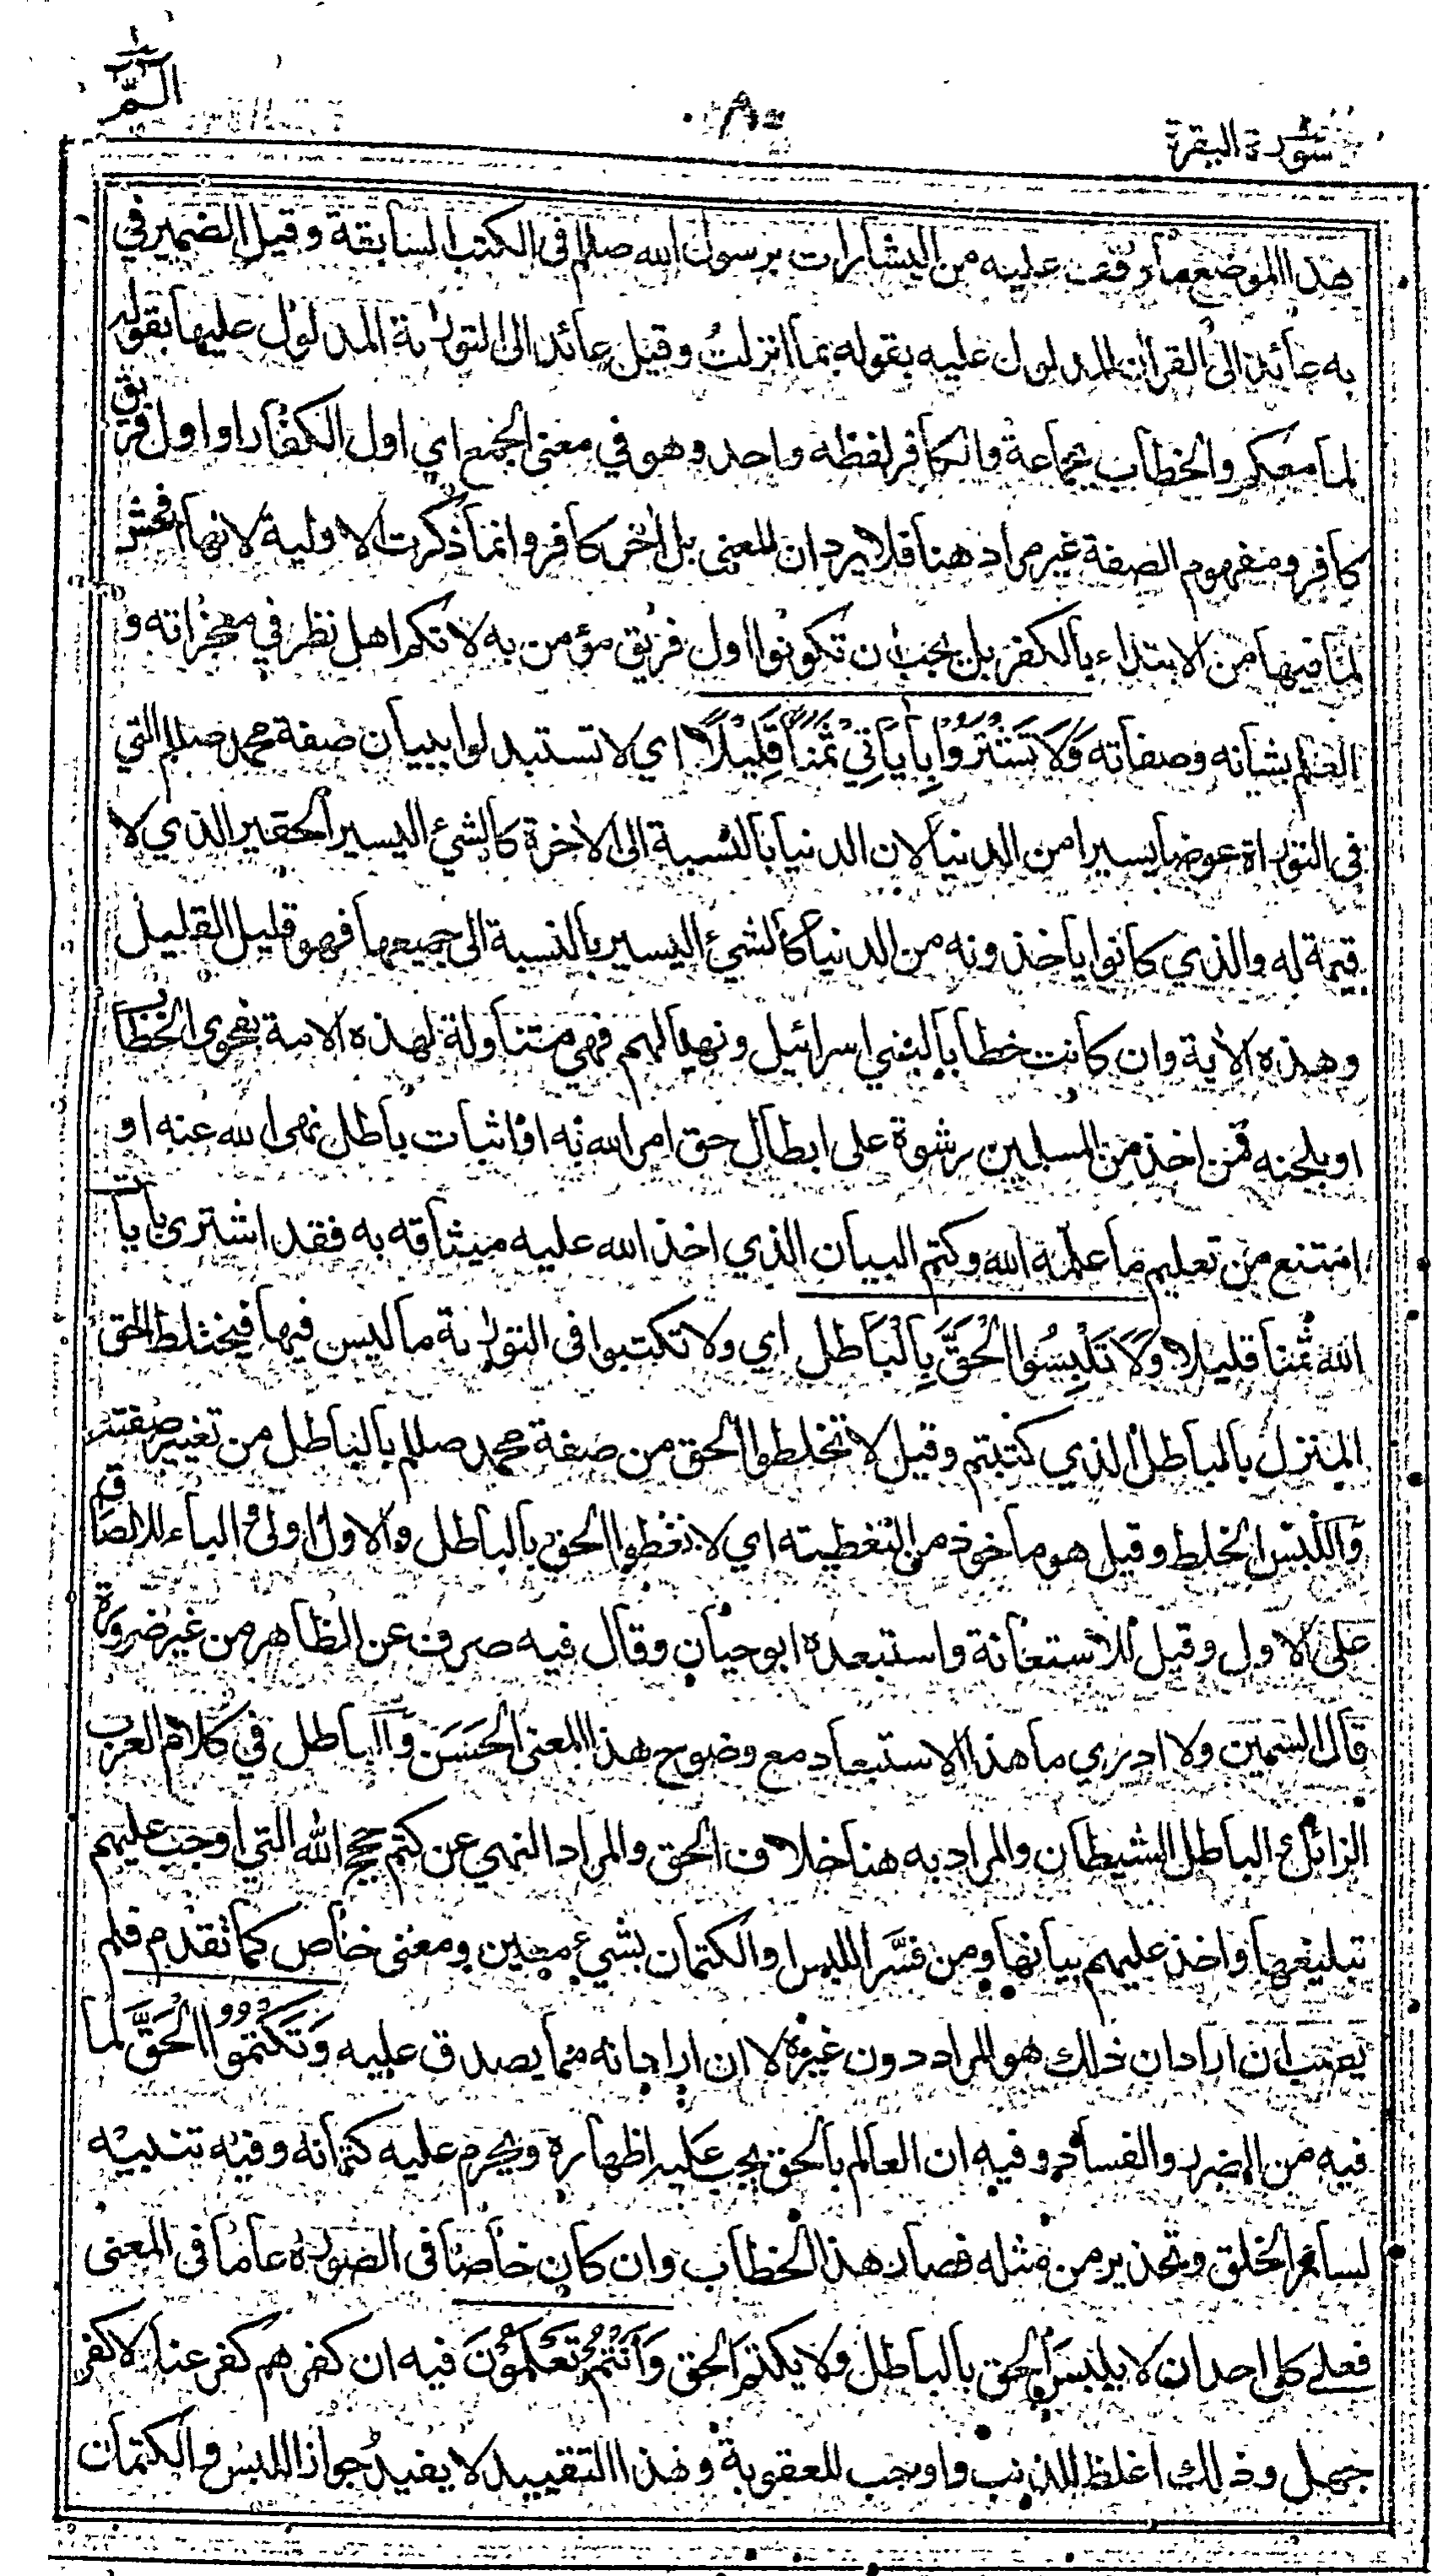 الٓمّ
سورة البقرة
هذا الموضع ما وقفت عليه من البشارات برسول الله صللم في الكتب السابقة وقيل الضمير في
به عائد الى القرآن المدلول عليه بقوله بما انزلت وقيل عائد الى التورٰىة المدلول عليها بقوله
لما معكم والخطاب لجماعة والكافر لفظه واحد وهو في معنى الجمع اي اول الكفار او اول فريق
كافر ومفهوم الصفة غير مراد هنا فلا يرد ان المعنى بل اٰخر كافر وانما ذكرت الاولية لانها افحش
لما فيها من الابتداء بالكفر بل يجب ان تكونوا اول فريق مؤمن به لانكم اهل نظر في معجزاته و
العلم بشانه وصفاته وَلَا تَشْتَرُوْا بِاٰيَاتِيْ ثَمَنًا قَلِيْلًا اي لا تستبدلوا ببيان صفة محمد صللم التي
في التوراة عوضا يسيرا من الدنيا لان الدنيا بالنسبة الى الاٰخرة كالشيء اليسير الحقير الذي لا
قيمة له والذي كانوا ياخذونه من الدنيا كالشيء اليسير بالنسبة الى جميعها فهو قليل القليل
وهذه الاٰية وان كانت خطابا لبني اسرائيل ونهيا لهم فهي متناولة لهذه الامة بفحوى الخطاب
او بلحنه فمن اخذ من المسلمين رشوة على ابطال حق امر الله به او اثبات باطل نهى الله عنه او
امتنع من تعليم ما علمه الله وكتم البيان الذي اخذ الله عليه ميثاقه به فقد اشترى باٰيات
الله ثمنا قليلا وَلَا تَلْبِسُوا الْحَقَّ بِالْبَاطِلِ اي ولا تكتبوا في التورٰىة ما ليس فيها فيختلط الحق
المنزل بالباطل الذي كتبتم وقيل لا تخلطوا الحق من صفة محمد صللم بالباطل من تغيير صفته
واللبس الخلط وقيل هو ماخوذ من التغطيته اي لا تغطوا الحق بالباطل والاول اولى والباء للالصاق
على الاول وقيل للاستعانة واستبعده ابو حيان وقال فيه صرف عن الظاهر من غير ضرورة
قال السمين ولا ادري ما هذا الاستبعاد مع وضوح هذا المعنى الحَسَن والباطل في كلام العرب
الزائل والباطل الشيطان والمراد به هنا خلاف الحق والمراد النهي عن كتم حجج الله التي اوجب عليهم
تبليغها واخذ عليهم بيانها ومن فسَّر اللبس والكتمان بشيء معين ومعنى خاص كما تقدم فلم
يصب ان اراد ان ذلك هو المراد دون غيره لا ان اراد انه مما يصدق عليه وَتَكْتُمُوا الْحَقَّ لما
فيه من الضرر والفساد وفيه ان العالم بالحق يجب عليه اظهاره ويحرم عليه كتمانه وفيه تنبيه
لسائر الخلق وتحذير من مثله فصار هذا الخطاب وان كان خاصا في الصورة عاما في المعنى
فعلى كل احد ان لا يلبس الحق بالباطل ولا يكتم الحق وَاَنْتُمْ تَعْلَمُوْنَ فيه ان كفرهم كفر عناد لا كفر
جهل وذلك اغلظ للذنب واوجب للعقوبة وهذا التقييد لا يفيد جواز اللبس والكتمان